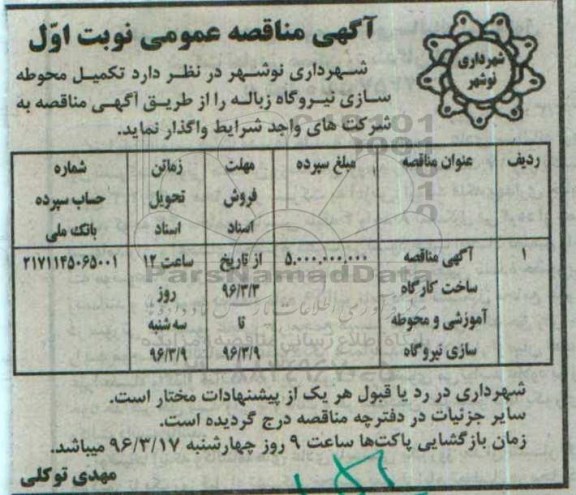 آگهی مناقصه عمومی نوبت اوّل
شهرداری
نوشهر
شهرداری نوشهر در نظر دارد تکمیل محوطه
سازی نیروگاه زباله را از طریق آگهی مناقصه به
شرکت های واجد شرایط واگذار نماید.
ردیف
عنوان مناقصه
مبلغ سپرده
مهلت
فروش
اسناد
زمانن
تحویل
اسناد
شماره
حساب سپرده
بانک ملی
۱
آگهی مناقصه
ساخت کارگاه
آموزشی و محوطه
سازی نیروگاه
۵,۰۰۰,۰۰۰,۰۰۰
از تاریخ
۹۶/۳/۳
تا
۹۶/۳/۹
ساعت ۱۲
روز
سه شنبه
۹۶/۳/۹
۲۱۷۱۱۴۵۰۶۵۰۰۱
ParsNamadData
شهرداری در رد یا قبول هر یک از پیشنهادات مختار است.
سایر جزئیات در دفترچه مناقصه درج گردیده است.
زمان بازگشایی پاکت‌ها ساعت ۹ روز چهارشنبه ۹۶/۳/۱۷ میباشد.
مهدی توکلی